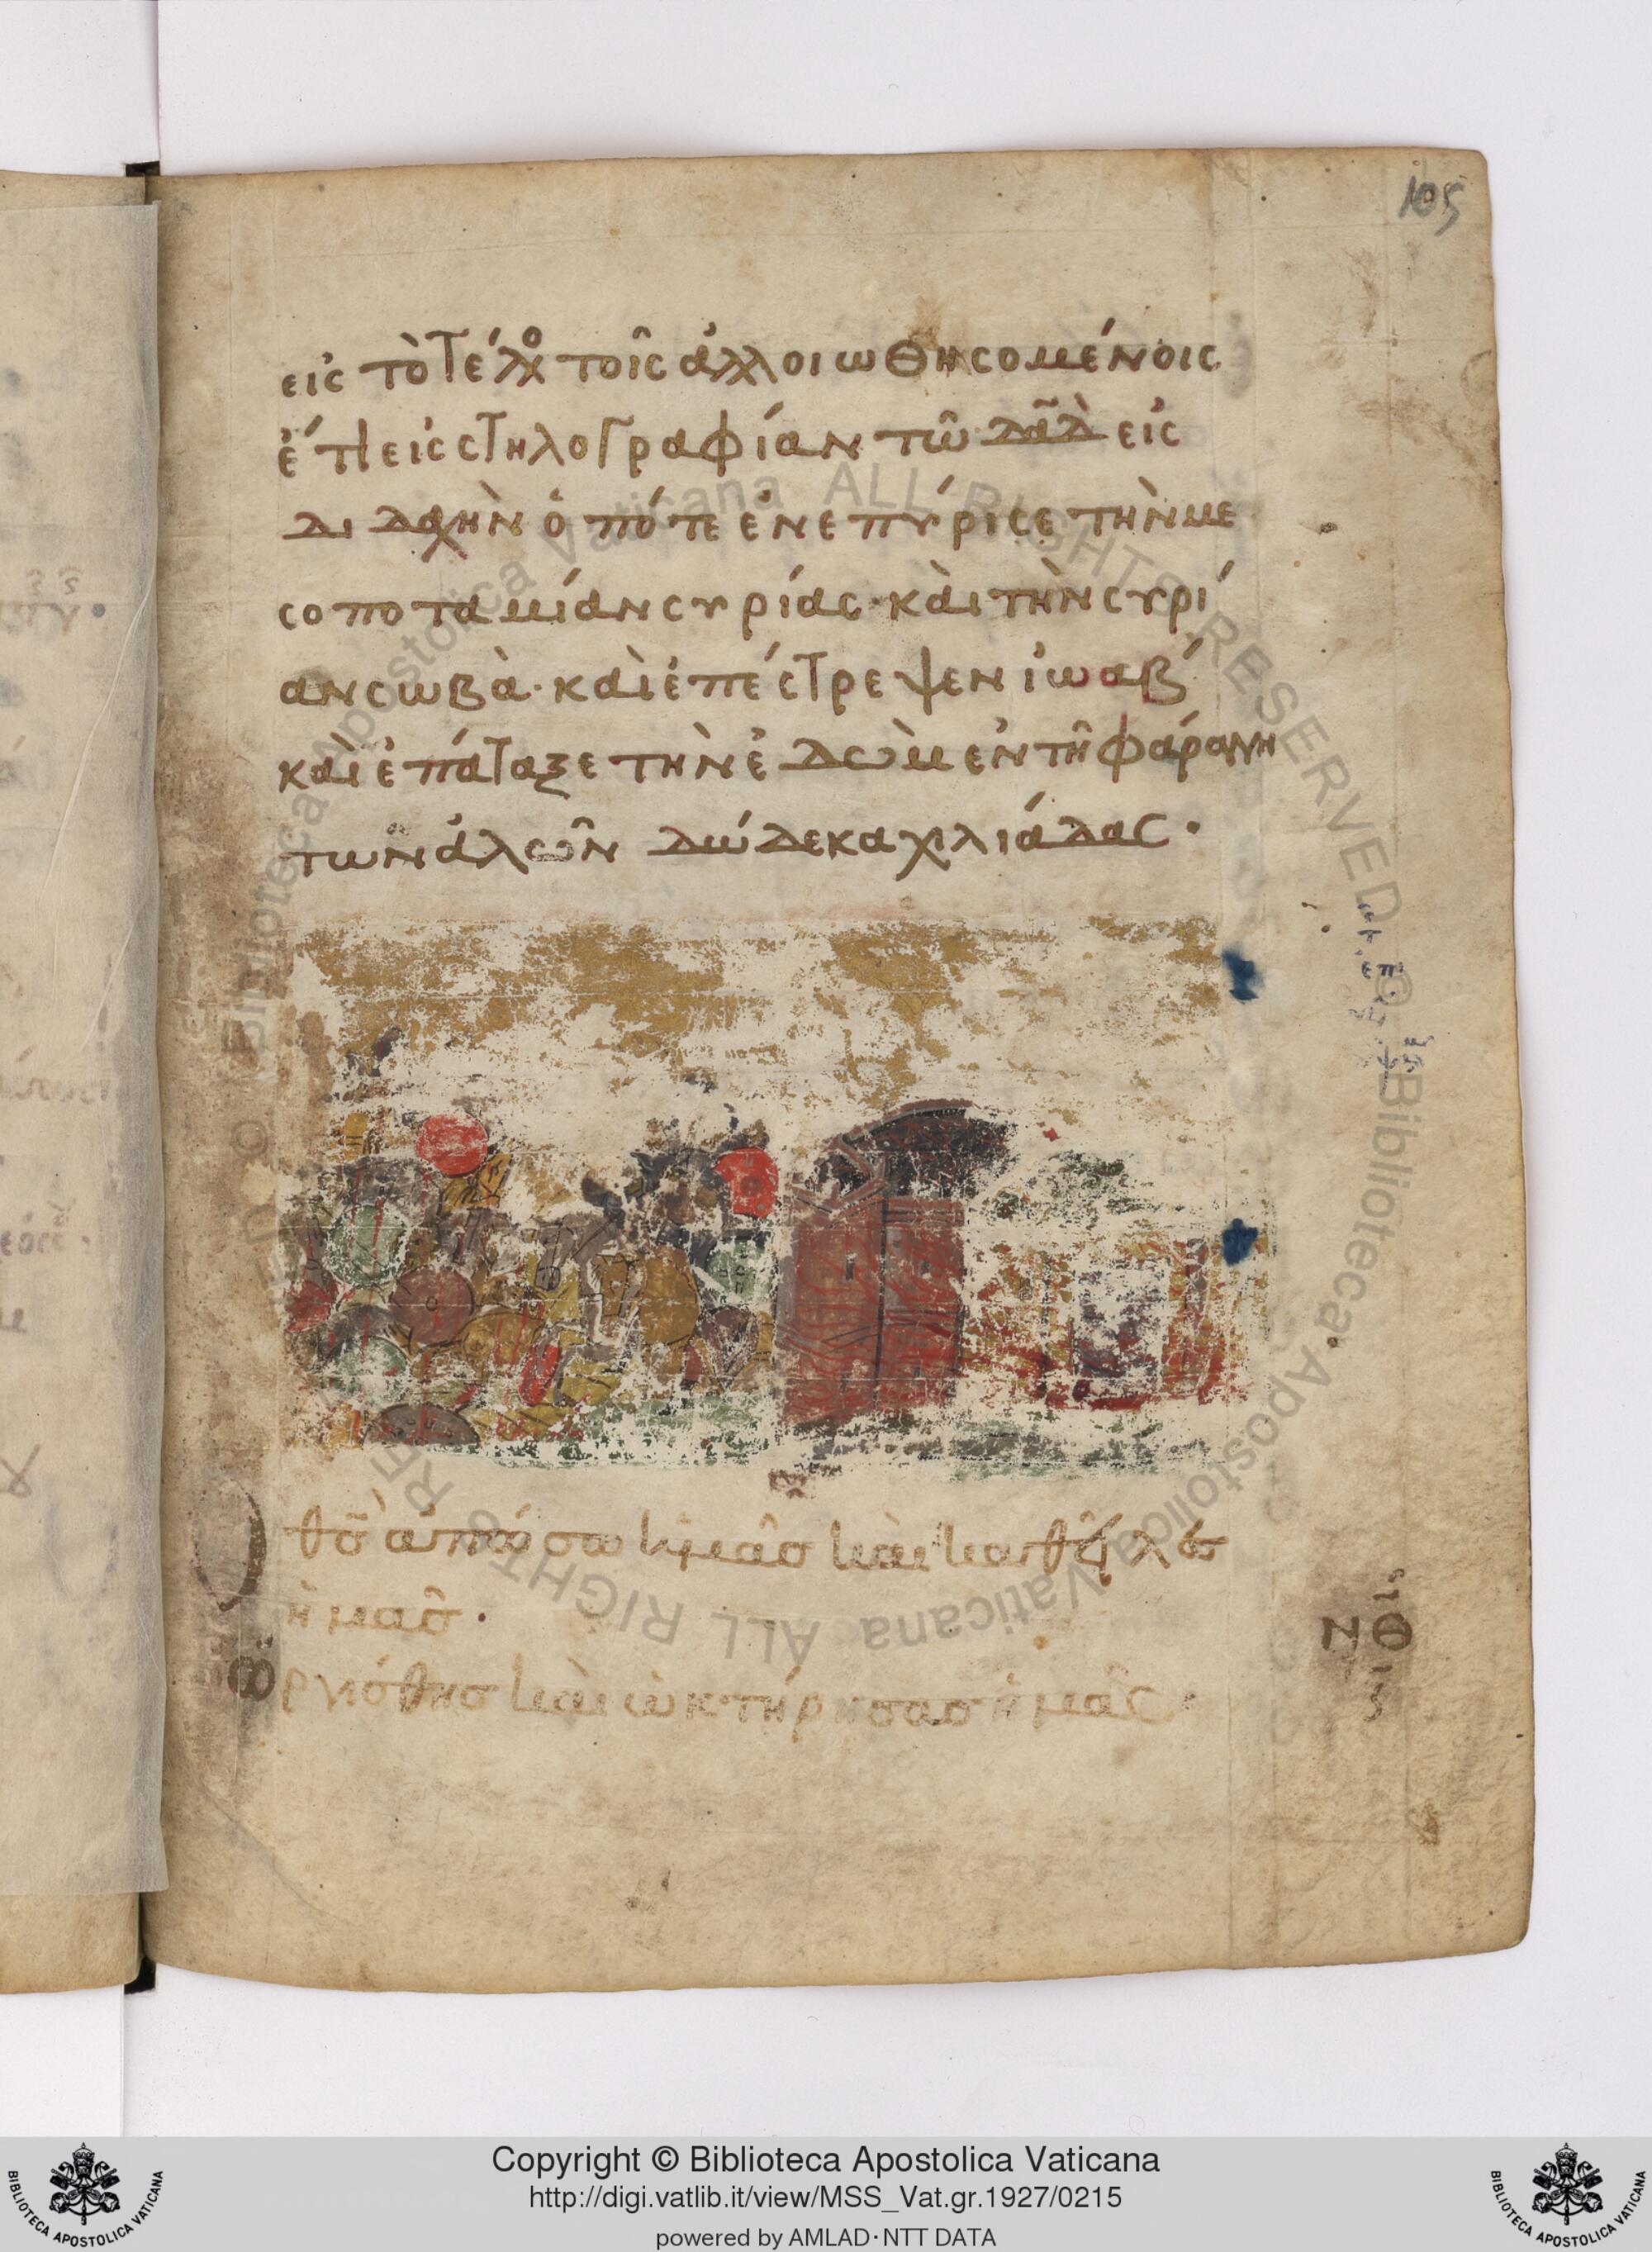 105
εἰς τὸ τέλος τοῖς ἀλλοιωθησομένοις
ἔτι εἰς στηλογραφίαν τῶ δᾱδ εἰς
διδαχὴν ὁπότε ἐνεπύρισε τὴν με
σοποταμίαν συρίας· καὶ τὴν συρί
αν σωβὰ· καὶ ἐπέστρεψεν ἰωαβ
καὶ ἐπάταξε τὴν ἐδὼμ ἐν τῆ φάραγγη
τῶν ἁλῶν δώδεκα χιλιάδας·
Ὁ θς̄ ἀπώσω ἡμᾶσ καὶ καθῆλες
ἡμᾶσ·
ὠργίσθησ καὶ ὠκτήρησασ ἡμᾶς·
ΝΘ
Copyright © Biblioteca Apostolica Vaticana
http://digi.vatlib.it/view/MSS_Vat.gr.1927/0215
powered by AMLAD·NTT DATA
BIBLIOTECA APOSTOLICA VATICANA
BIBLIOTECA APOSTOLICA VATICANA
© Biblioteca Apostolica Vaticana ALL RIGHTS RESERVED © Biblioteca Apostolica Vaticana ALL RIGHTS RESERVED